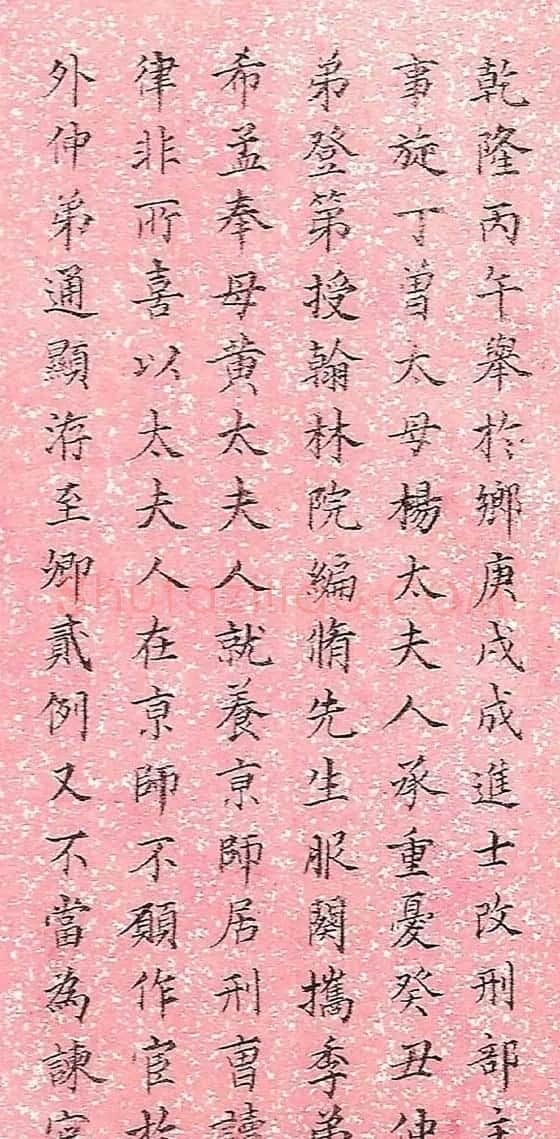 乾隆丙午舉於鄉庚戌成進士改刑部主
事旋丁曾太母楊太夫人承重憂癸丑仲
弟登第授翰林院編脩先生服闋攜季弟
希孟奉母黃太夫人就養京師居刑曹讀
律非所喜以太夫人在京師不願作官於
外仲弟通顯洊至卿貳例又不當為諫官